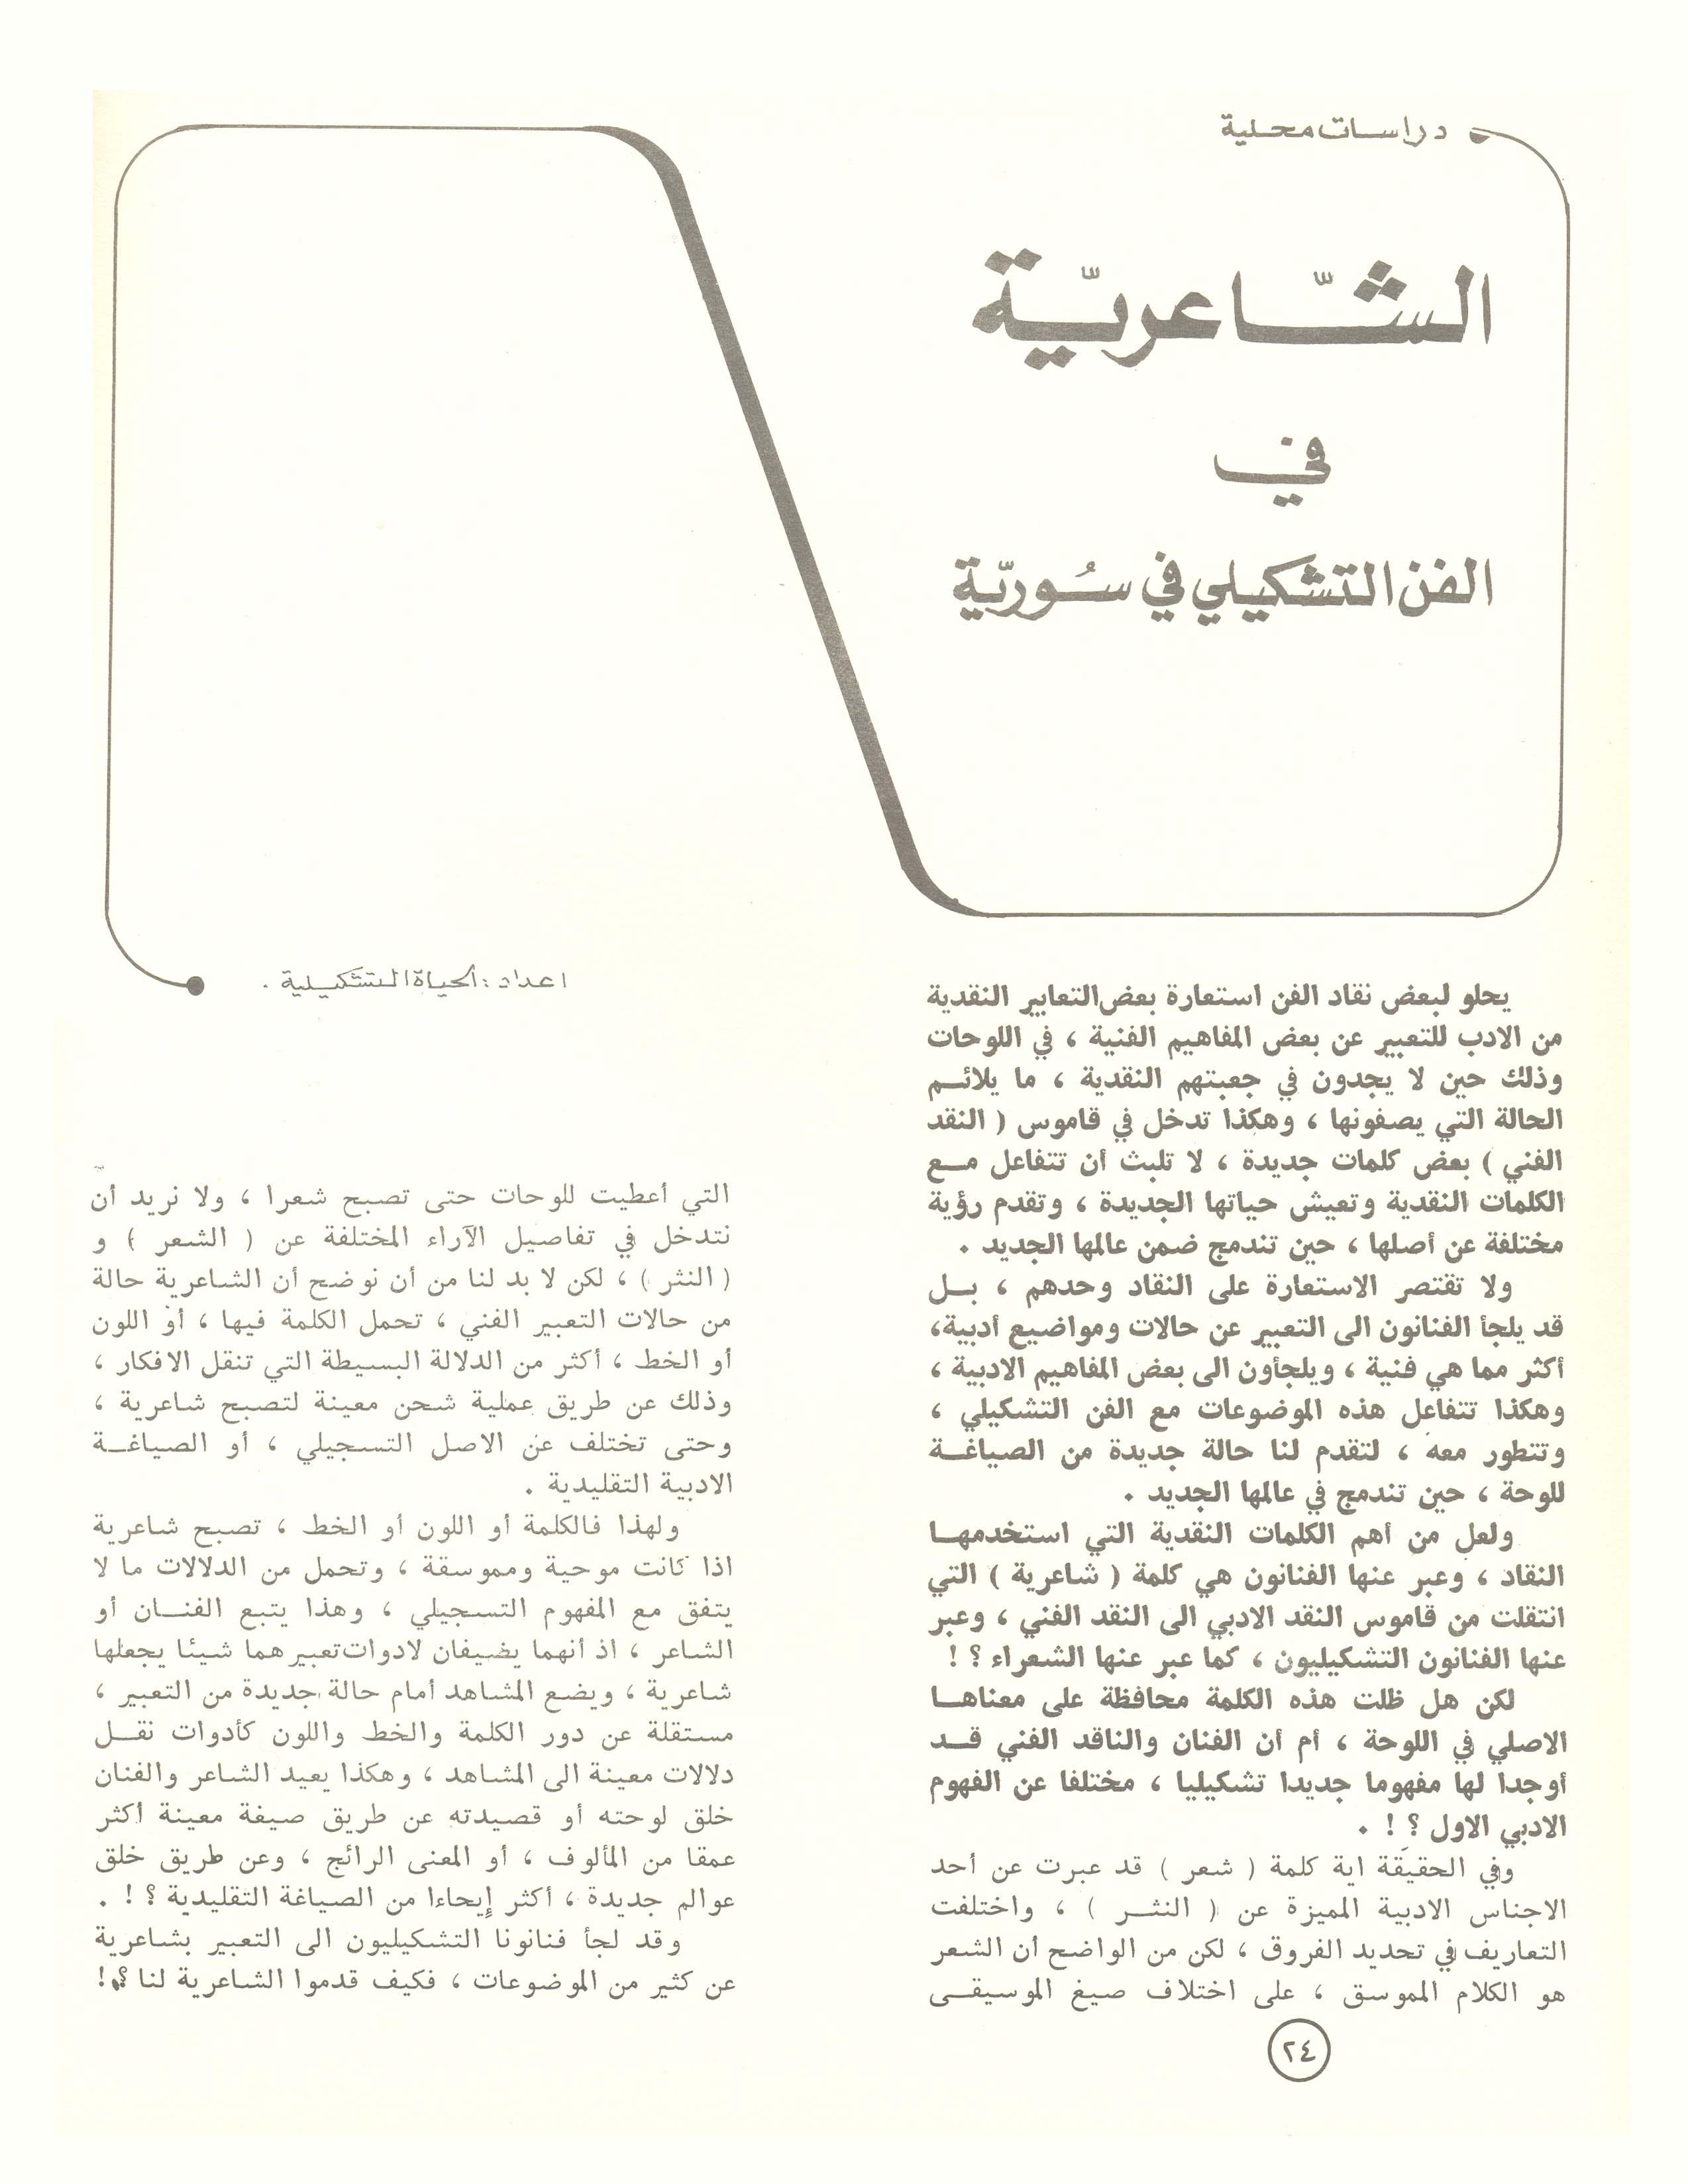 دراسات محلية
الشّاعريّة
في
الفن التشكيلي في سُوريّة
اعداد : الحياة التشكيلية .
يحلو لبعض نقاد الفن استعارة بعض التعابير النقدية
من الادب للتعبير عن بعض المفاهيم الفنية ، في اللوحات
وذلك حين لا يجدون في جعبتهم النقدية ، ما يلائم
الحالة التي يصفونها ، وهكذا تدخل في قاموس ( النقد
الفني ) بعض كلمات جديدة ، لا تلبث أن تتفاعل مع
الكلمات النقدية وتعيش حياتها الجديدة ، وتقدم رؤية
مختلفة عن أصلها ، حين تندمج ضمن عالمها الجديد .
ولا تقتصر الاستعارة على النقاد وحدهم ، بل
قد يلجأ الفنانون الى التعبير عن حالات ومواضيع أدبية،
أكثر مما هي فنية ، ويلجأون الى بعض المفاهيم الادبية ،
وهكذا تتفاعل هذه الموضوعات مع الفن التشكيلي ،
وتتطور معه ، لتقدم لنا حالة جديدة من الصياغة
للوحة ، حين تندمج في عالمها الجديد .
ولعل من أهم الكلمات النقدية التي استخدمها
النقاد ، وعبر عنها الفنانون هي كلمة ( شاعرية ) التي
انتقلت من قاموس النقد الادبي الى النقد الفني ، وعبر
عنها الفنانون التشكيليون ، كما عبر عنها الشعراء ؟ !
لكن هل ظلت هذه الكلمة محافظة على معناها
الاصلي في اللوحة ، أم أن الفنان والناقد الفني قد
أوجدا لها مفهوما جديدا تشكيليا ، مختلفا عن الفهوم
الادبي الاول ؟ ! .
وفي الحقيقة اية كلمة ( شعر ) قد عبرت عن أحد
الاجناس الادبية المميزة عن ( النثر ) ، واختلفت
التعاريف في تحديد الفروق ، لكن من الواضح أن الشعر
هو الكلام المموسق ، على اختلاف صيغ الموسيقى
التي أعطيت للوحات حتى تصبح شعرا ، ولا نريد أن
نتدخل في تفاصيل الآراء المختلفة عن ( الشعر ) و
( النثر ) ، لكن لا بد لنا من أن نوضح أن الشاعرية حالة
من حالات التعبير الفني ، تحمل الكلمة فيها ، أو اللون
أو الخط ، أكثر من الدلالة البسيطة التي تنقل الافكار ،
وذلك عن طريق عملية شحن معينة لتصبح شاعرية ،
وحتى تختلف عن الاصل التسجيلي ، أو الصياغة
الادبية التقليدية .
ولهذا فالكلمة أو اللون أو الخط ، تصبح شاعرية
اذا كانت موحية ومموسقة ، وتحمل من الدلالات ما لا
يتفق مع المفهوم التسجيلي ، وهذا يتبع الفنان أو
الشاعر ، اذ أنهما يضيفان لادوات تعبيرهما شيئا يجعلها
شاعرية ، ويضع المشاهد أمام حالة جديدة من التعبير ،
مستقلة عن دور الكلمة والخط واللون كأدوات نقل
دلالات معينة الى المشاهد ، وهكذا يعيد الشاعر والفنان
خلق لوحته أو قصيدته عن طريق صيغة معينة أكثر
عمقا من المألوف ، أو المعنى الرائج ، وعن طريق خلق
عوالم جديدة ، أكثر إيحاءا من الصياغة التقليدية ؟ ! .
وقد لجأ فنانونا التشكيليون الى التعبير بشاعرية
عن كثير من الموضوعات ، فكيف قدموا الشاعرية لنا ؟. !
٢٤